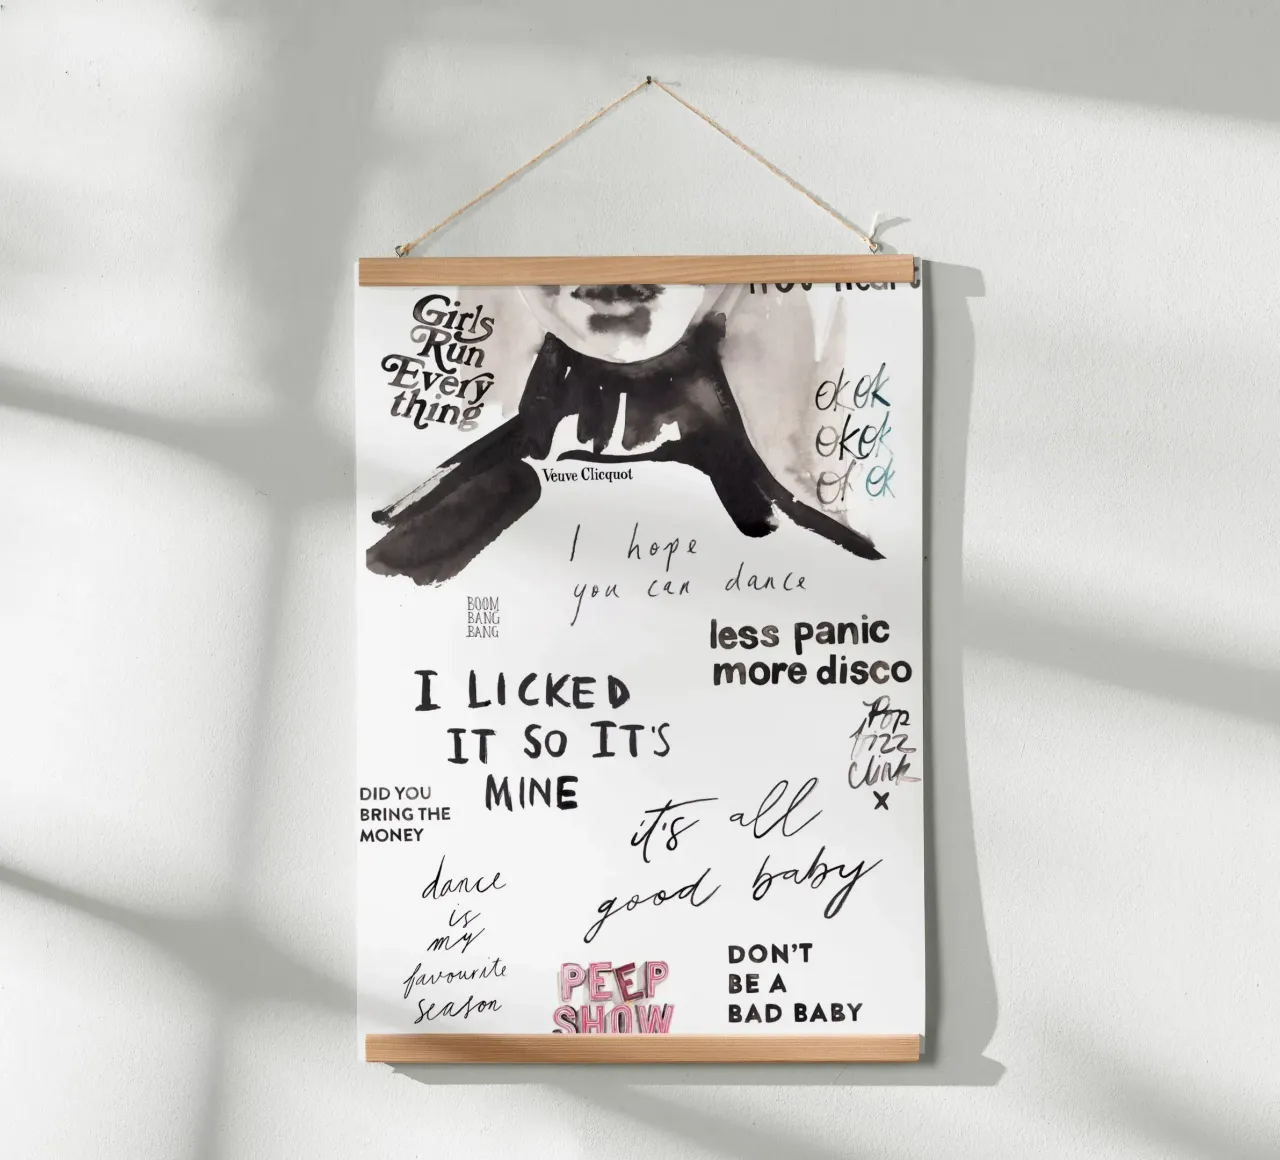 Girls
Run
Every
thing
ok ok
ok ok
ok ok
Veuve Clicquot
I hope
you can dance
BOOM
BANG
BANG
less panic
more disco
I LICKED
IT SO IT'S
MINE
Pop
fizz
Clink
x
DID YOU
BRING THE
MONEY
it's all
good baby
dance
is
my
favourite
season
PEEP
SHOW
DON'T
BE A
BAD BABY